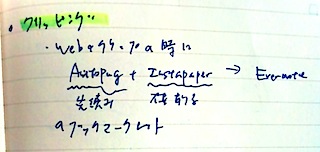 ・クリッピング
・webクリップの時に
Autopug + Instapaper → Evernote
先読み
のブックマークレット